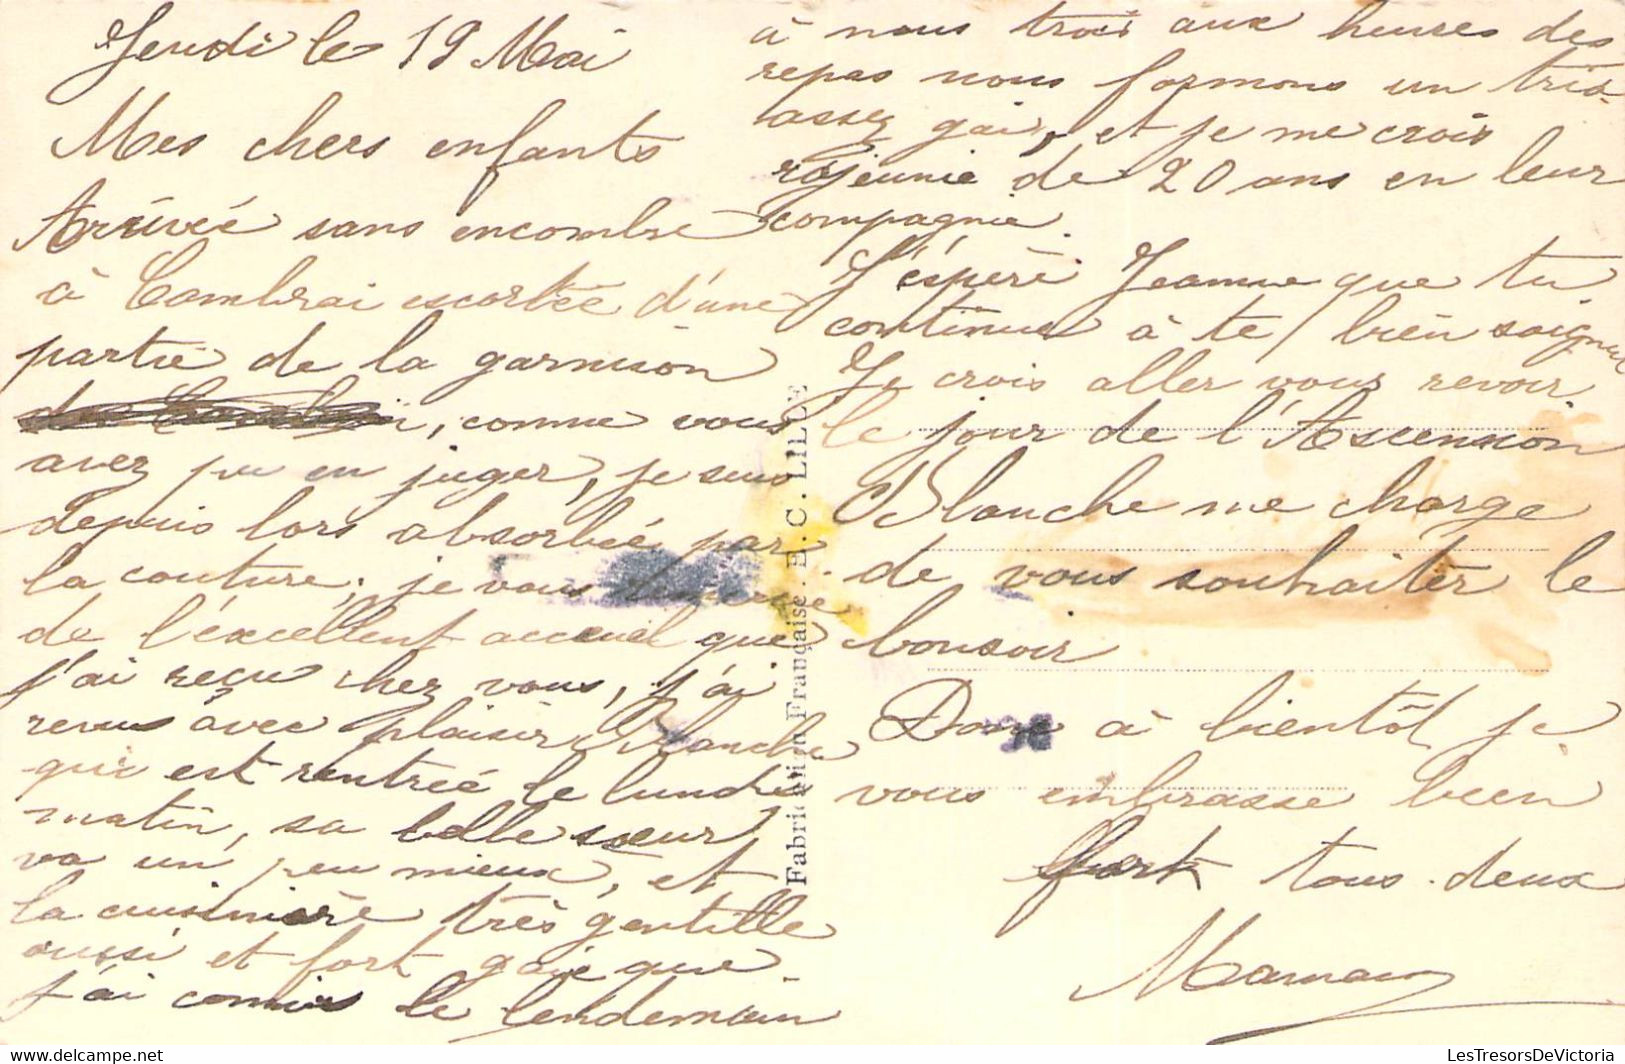 Jeudi le 19 Mai
Mes chers enfants
Arrivée sans encombre
à Cambrai escortée d'une
partie de la garnison
, comme vous
avez pu en juger, je suis
depuis lors absorbée par
la couture; je vous
de l'excellent accueil que
j'ai reçu chez vous, j'ai
revu avec plaisir Blanche
qui est rentrée le lundi
matin, sa belle sœur
va un peu mieux, et
la cuisinière très gentille
aussi et fort gaie que
j'ai connue le lendemain
à nous trois aux heures des
repas nous formons un trio
assez gai, et je me crois
rajeunie de 20 ans en leur
compagnie.
J'espère Jeanne que tu
continues à te bien soigner
Je crois aller vous revoir
le jour de l'Ascension
Blanche me charge
de vous souhaiter le
bonsoir
Donc à bientôt je
vous embrasse bien
fort tous deux
Maman
Fabrication Française. B. C. LILLE
LesTresorsDeVictoria.com